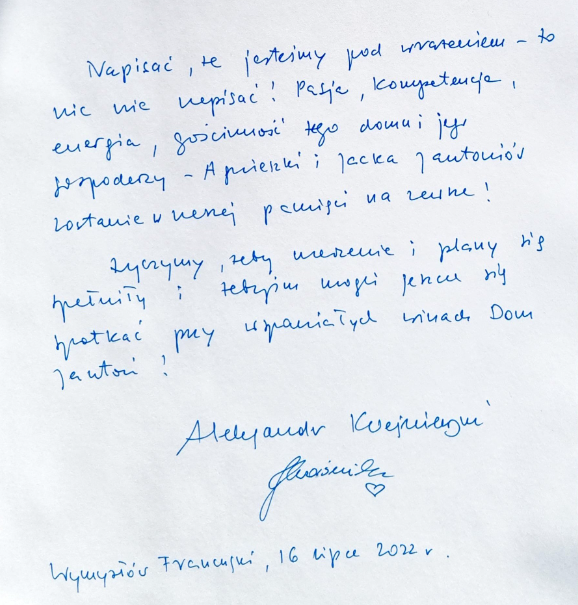 Napisać, że jesteśmy pod wrażeniem – to
nic nie napisać! Pasja, kompetencja,
energia, gościnność tego domu i jego
gospodarzy – Agnieszki i Jacka Jantoniów
zostanie w naszej pamięci na zawsze!
Życzymy, żeby marzenia i plany się
spełniły i żebyśmy mogli jeszcze się
spotkać przy wspaniałych winach Dom
Jantoń!
Aleksander Kwaśniewski
Wymysłów Francuski, 16 lipca 2022 r.